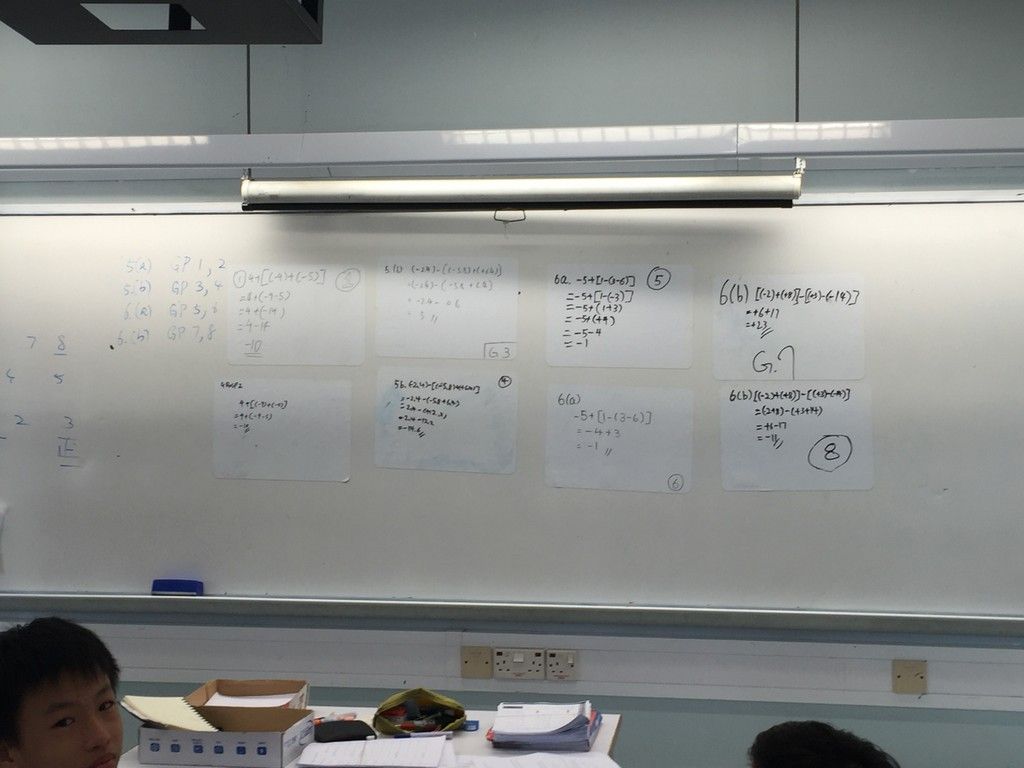 5(a) GP 1, 2
5(b) GP 3, 4
6(a) GP 5, 6
6(b) GP 7, 8
7 8
2 3
① 4+[(-9)+(-5)] ②
=4+(-9-5)
=4+(-14)
=4-14
-10
(-2.4)-[(-5.8)+(+6.4)]
=(-2.4)-(-5.8+6.4)
=-2.4-0.6
=3
G3
6a. -5+[1-(3-6)] ⑤
=-5+[1-(-3)]
=-5+(1+3)
=-5+(+4)
=-5-4
=-1
6(b) [(-2)+(+8)]-[(+3)-(-14)]
=+6+17
=+23
G.7
4+[(-9)+(-5)]
=4+(-9-5)
=-10
5b. (-2.4)-[(-5.8)+(+6.4)] ④
=-2.4-(-5.8+6.4)
6(a)
-5+[1-(3-6)]
=-4+3
=-1
⑥
6(b) [(-2)+(+8)]-[(+3)-(-14)]
=(-2+8)-(+3+14)
=+6-17
=-11
⑧